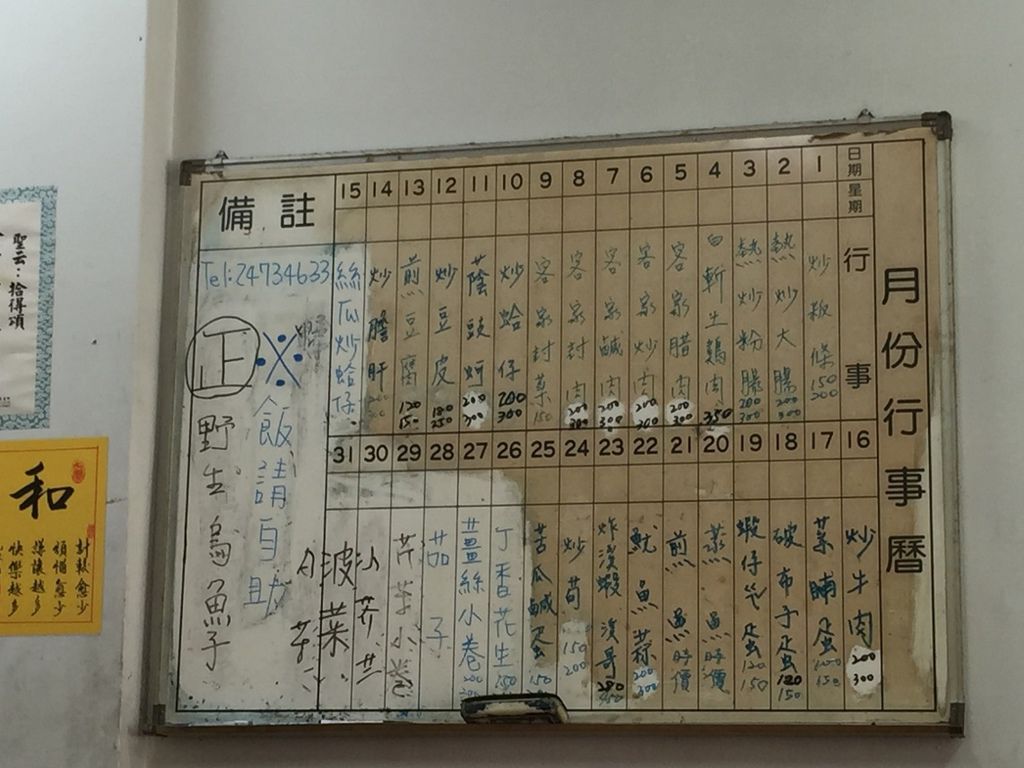 月份行事曆
日期
星期
行事
1 2 3 4 5 6 7 8 9 10 11 12 13 14 15
炒粄條 150 200
熱炒大腸 200 300
熱炒粉腸 200 300
白斬土雞肉 350
客家臘肉 200 300
客家炒肉 200 300
客家鹹肉 200 300
客家封肉 200 300
客家封菜 150
炒蛤仔 200 300
蔭豉蚵 200 300
炒豆皮 180 250
煎豆腐 120 150
炒膽肝
絲瓜炒蛤仔
16 17 18 19 20 21 22 23 24 25 26 27 28 29 30 31
炒牛肉 200 300
菜脯蛋 100 150
破布子蛋 120 150
蝦仔蛋 120 150
蒸魚 時價
煎魚 時價
魷魚蒜 200 300
炸溪蝦 溪哥 250
炒筍 150 200
苦瓜鹹蛋 150
丁香花生 150
薑絲小卷 200 300
茄子
芹菜小卷
波菜
備註
Tel:24734633
※飯請自助
正 野生烏魚子
聖云：捨得項
和
計較愈少
煩惱愈少
謙讓越多
快樂越多